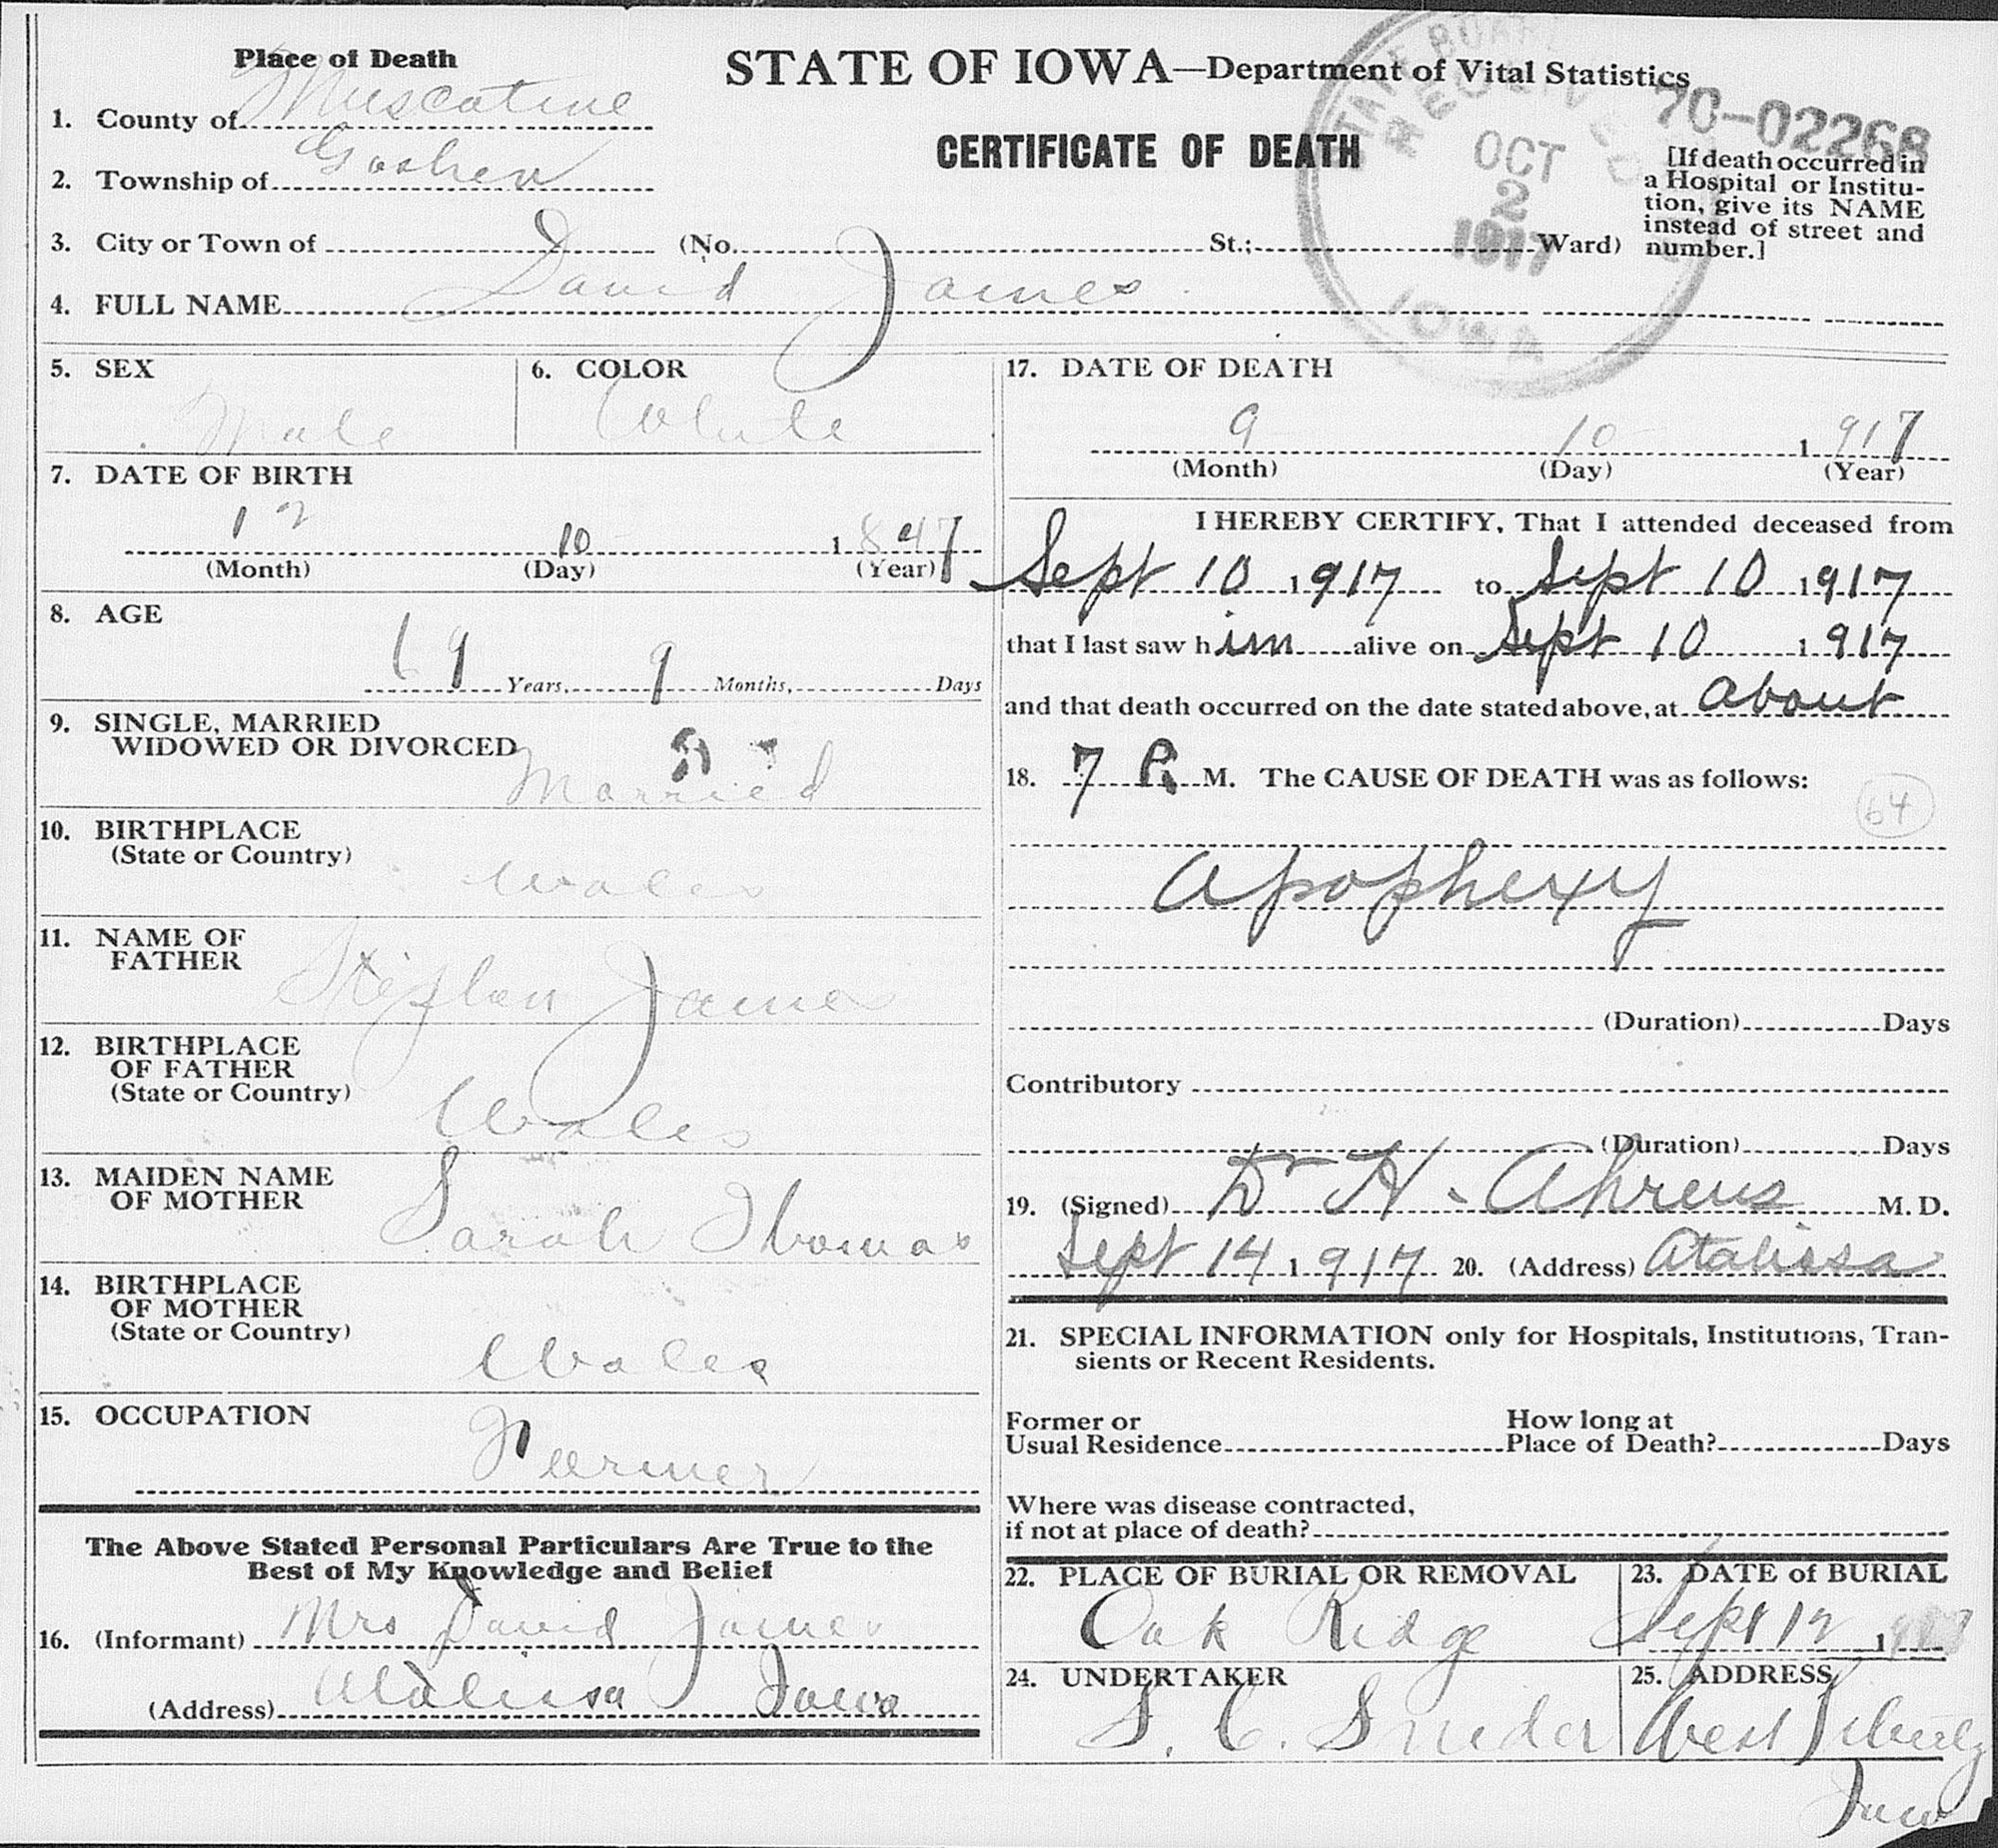 Place of Death
STATE OF IOWA—Department of Vital Statistics
STATE BOARD
RECEIVED
OCT
2
1917
IOWA
70-02268
1. County of Muscatine
CERTIFICATE OF DEATH
2. Township of Goshen
[If death occurred in
a Hospital or Institu-
tion, give its NAME
instead of street and
number.]
3. City or Town of (No. St.; Ward)
4. FULL NAME David James
5. SEX Male
6. COLOR White
7. DATE OF BIRTH
12 10 1847
(Month) (Day) (Year)
8. AGE
69 Years, 9 Months, Days
9. SINGLE, MARRIED
WIDOWED OR DIVORCED
Married
10. BIRTHPLACE
(State or Country)
Wales
11. NAME OF
FATHER
Stephen James
12. BIRTHPLACE
OF FATHER
(State or Country)
Wales
13. MAIDEN NAME
OF MOTHER
Sarah Thomas
14. BIRTHPLACE
OF MOTHER
(State or Country)
Wales
15. OCCUPATION
Farmer
The Above Stated Personal Particulars Are True to the
Best of My Knowledge and Belief
16. (Informant) Mrs David James
(Address) Atalissa Iowa
17. DATE OF DEATH
9 10 1917
(Month) (Day) (Year)
I HEREBY CERTIFY, That I attended deceased from
Sept 10 1917 to Sept 10 1917
that I last saw him alive on Sept 10 1917
and that death occurred on the date stated above, at about
18. 7 P. M. The CAUSE OF DEATH was as follows:
64
Apophexy
(Duration) Days
Contributory
(Duration) Days
19. (Signed) Dr H. Ahrens M. D.
Sept 14 1917 20. (Address) Atalissa
21. SPECIAL INFORMATION only for Hospitals, Institutions, Tran-
sients or Recent Residents.
Former or
Usual Residence
How long at
Place of Death? Days
Where was disease contracted,
if not at place of death?
22. PLACE OF BURIAL OR REMOVAL
Oak Ridge
23. DATE of BURIAL
Sept 12 1
24. UNDERTAKER
S. C. Snider
25. ADDRESS
West Liberty